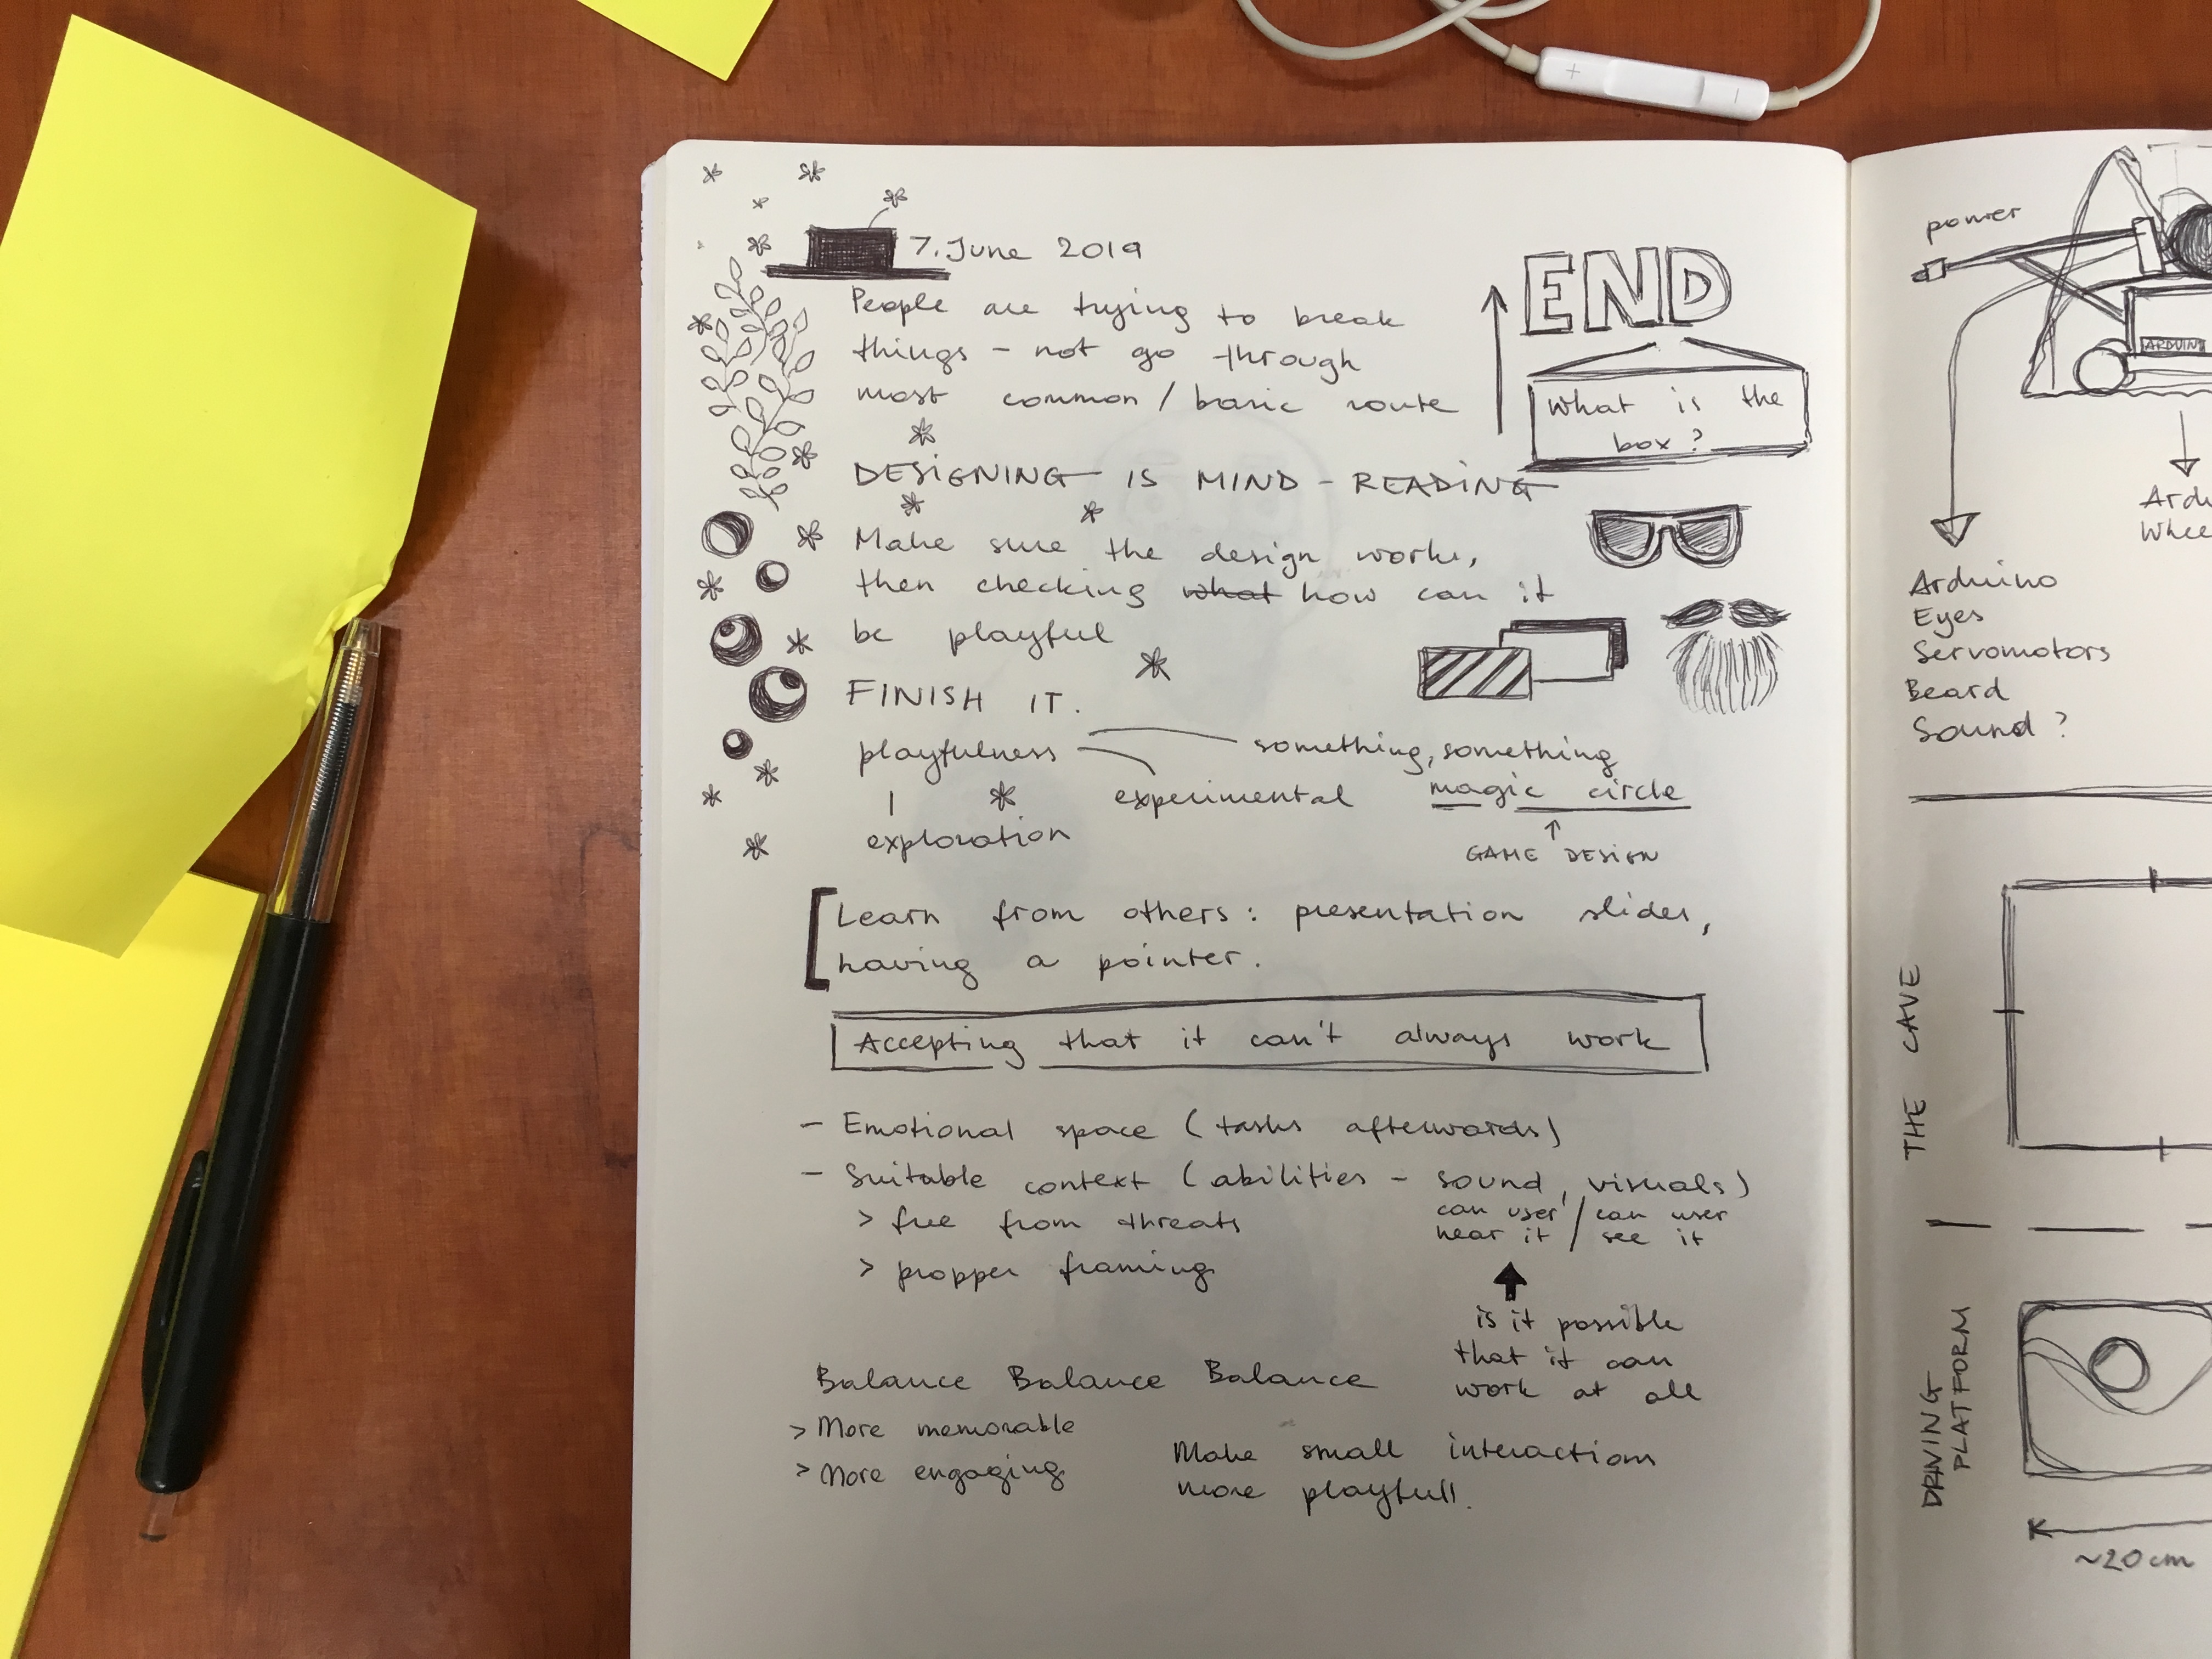 7. June 2019
People are trying to break
things – not go through
most common / basic route
END
What is the
box?
DESIGNING IS MIND – READING
Make sure the design works,
then checking what how can it
be playful
FINISH IT.
playfulness
something, something
experimental
magic circle
exploration
GAME DESIGN
Learn from others: presentation slides,
having a pointer.
Accepting that it can't always work
– Emotional space (tasks afterwards)
– Suitable context (abilities – sound, visuals)
can user / can user
hear it / see it
> free from threats
> propper framing
is it possible
that it can
work at all
Balance Balance Balance
> More memorable
> More engaging
Make small interactions
more playfull.
power
ARDUIN
Ardu
Whee
Arduino
Eyes
Servomotors
Beard
Sound?
THE CAVE
DRIVING
PLATFORM
~20cm